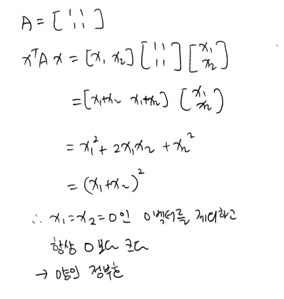 A = [ 1 1 1 1 ]
xᵀAx = [x₁ x₂] [ 1 1 1 1 ] [ x₁ x₂ ]
= [x₁+x₂ x₁+x₂] [ x₁ x₂ ]
= x₁² + 2x₁x₂ + x₂²
= (x₁+x₂)²
∴ x₁=x₂=0인 0벡터를 제외하고
항상 0보다 크다
→ 양의 정부호